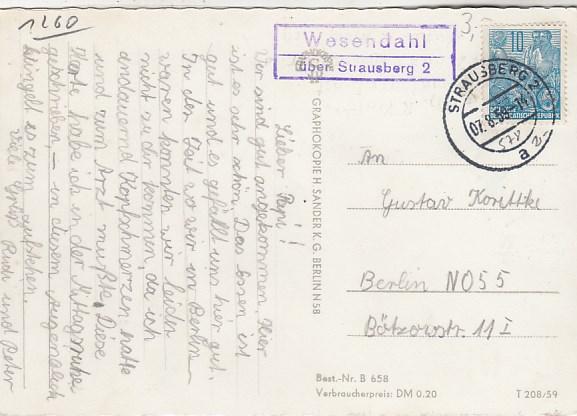 1260
3,
Wesendahl
über Strausberg 2
10
STRAUSBERG 2
a
DEUTSCHE DEMOKRATISCHE REPUBLIK
Lieber Papi!
Wir sind gut angekommen. Hier
ist es sehr schön. Das Essen ist
gut und es gefällt uns hier gut.
In der Zeit wo wir in Berlin
waren konnten wir leider
nicht zu dir kommen, da ich
andauernd Kopfschmerzen hatte
und zum Arzt mußte. Diese
Karte habe ich in der Mittagsruhe
geschrieben, – in diesem Augenblick
klingelt es zum aufstehen.
Viele Grüße
und Peter
GRAPHOKOPIE H. SANDER K. G. BERLIN N 58
An
Gustav Korittke
Berlin NO 55
Bötzowstr. 11 I
Best.-Nr. B 658
Verbraucherpreis: DM 0.20
T 208/59